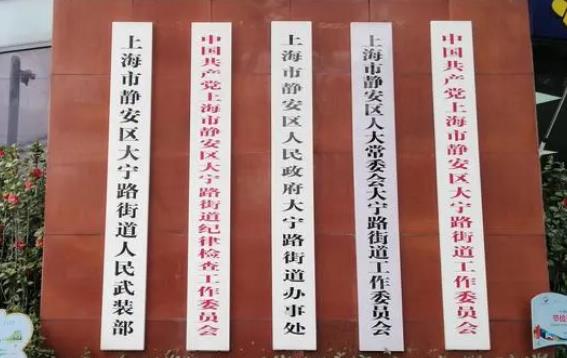 上海市静安区大宁路街道人民武装部
中国共产党上海市静安区大宁路街道纪律检查工作委员会
上海市静安区人民政府大宁路街道办事处
上海市静安区人大常委会大宁路街道工作委员会
中国共产党上海市静安区大宁路街道工作委员会